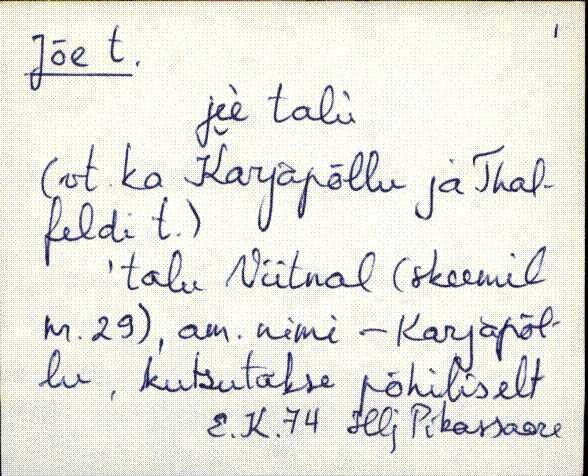 Jõe t.
jèe talu
(vt. ka Karjapõllu ja Thal-
feldi t.)
'talu Viitnal (skeemil
nr. 29), am. nimi - Karjapõl-
lu, kutsutakse põhiliselt
E.K. 74 Hlj Pikassaare